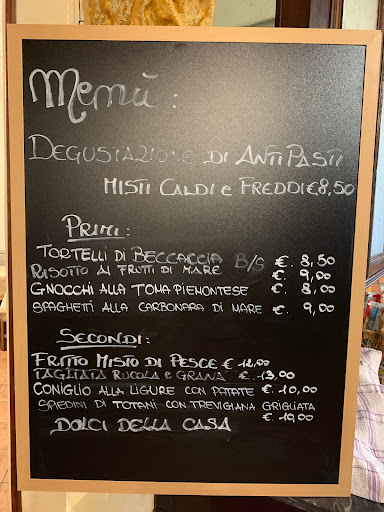 Menù:
DEGUSTAZIONE DI ANTIPASTI
MISTI CALDI e FREDDI €8,50
PRIMI:
TORTELLI DI BECCACCIA B/S €. 8,50
RISOTTO AI FRUTTI DI MARE €. 9,00
GNOCCHI ALLA TOMA PIEMONTESE €. 8,00
SPAGHETTI ALLA CARBONARA DI MARE €. 9,00
SECONDI:
FRITTO MISTO DI PESCE € 12,00
TAGLIATA RUCOLA e GRANA €. 13,00
CONIGLIO ALLA LIGURE CON PATATE €. 10,00
SPIEDINI DI TOTANI CON TREVIGIANA GRIGLIATA
€. 10,00
DOLCI DELLA CASA